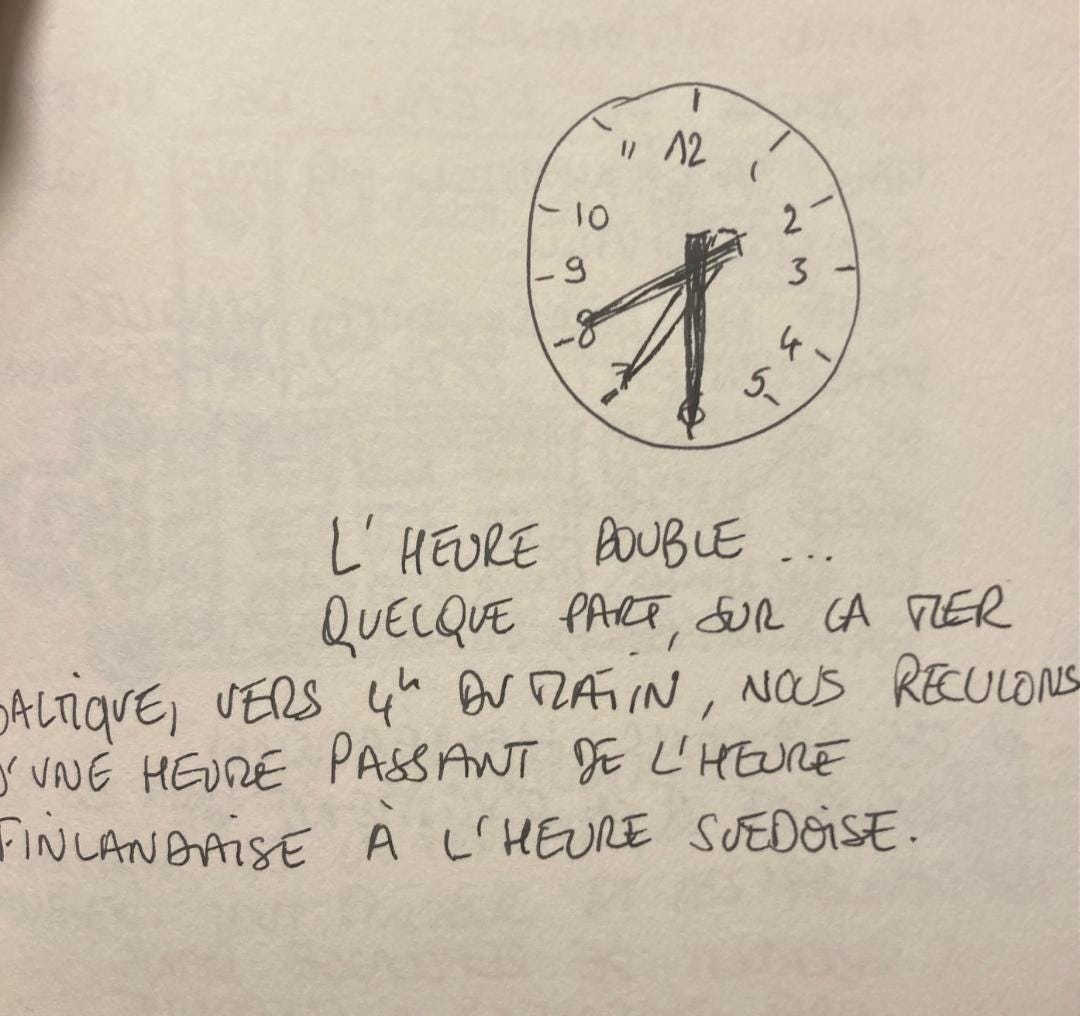 12
11
1
10
2
9
3
8
4
7
5
6
L'HEURE DOUBLE ...
QUELQUE PART, SUR LA MER
BALTIQUE, VERS 4h DU MATIN, NOUS RECULONS
D'UNE HEURE PASSANT DE L'HEURE
FINLANDAISE À L'HEURE SUEDOISE.